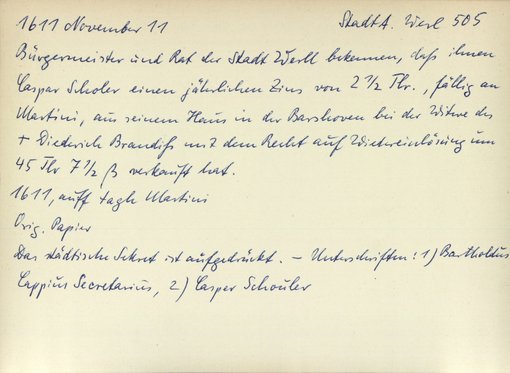 1611 November 11 StadtA. Werl 505
Bürgermeister und Rat der Stadt Werll bekennen, daß ihnen
Caspar Scholer einen jährlichen Zins von 2 1/2 Tlr., fällig an
Martini, aus seinem Haus in der Barshoven bei der Witwe des
+ Diederich Brandiß mit dem Recht auf Wiedereinlösung um
45 Tlr 7 1/2 ß verkauft hat.
1611, auff tagh Martini
Orig. Papier
Das städtische Sekret ist aufgedrückt. – Unterschriften: 1) Bartholdus
Cappius Secretarius, 2) Casper Schouler